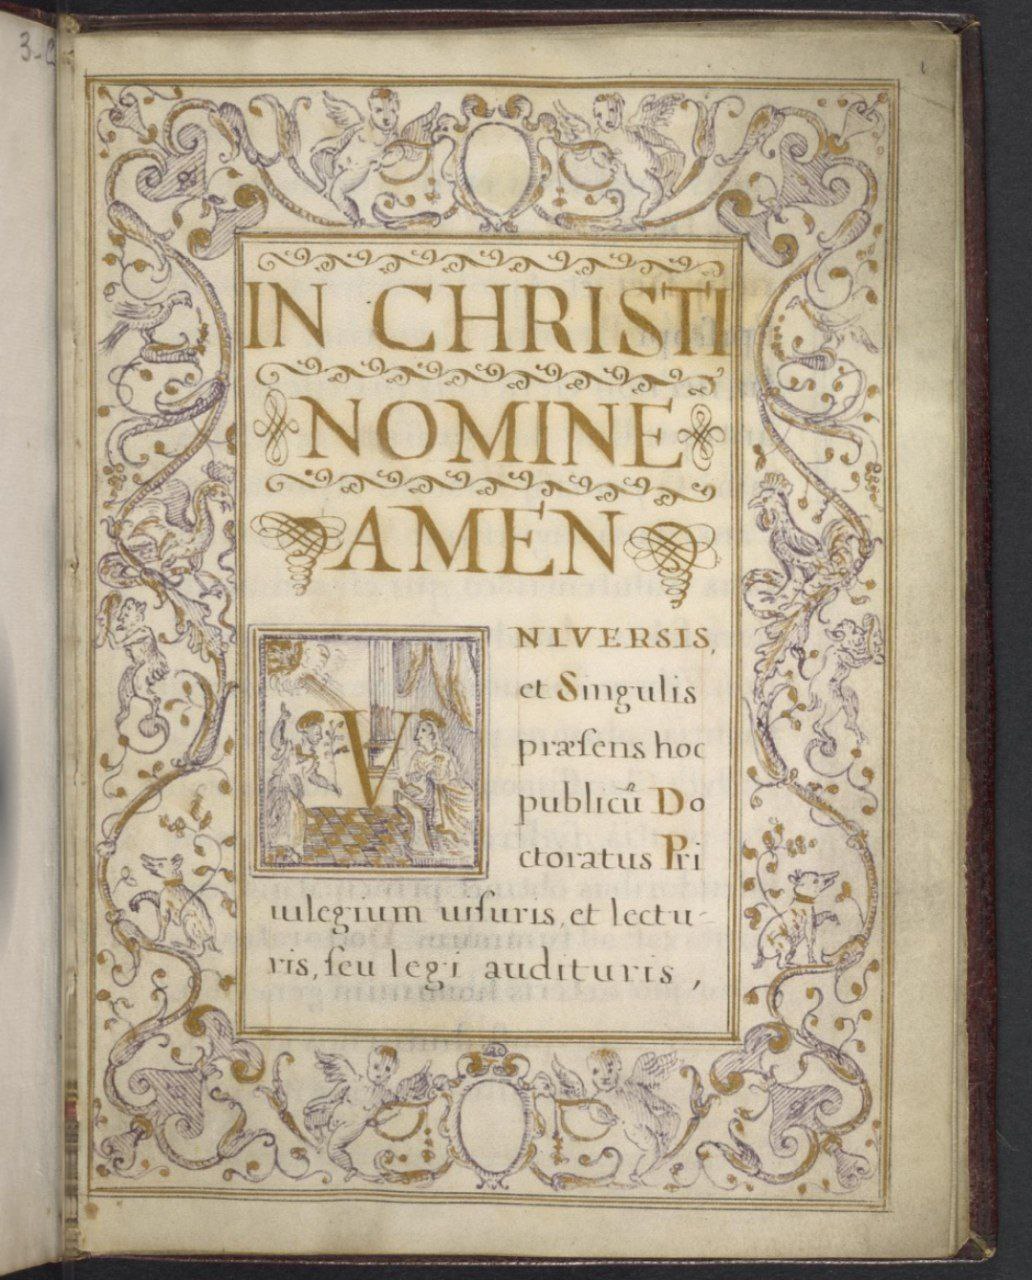 3-
1
IN CHRISTI
NOMINE
AMEN
VNIVERSIS,
et Singulis
præſens hoc
publicū Do
ctoratus Pri
uilegium uiſuris, et lectu-
ris, ſeu legi audituris,